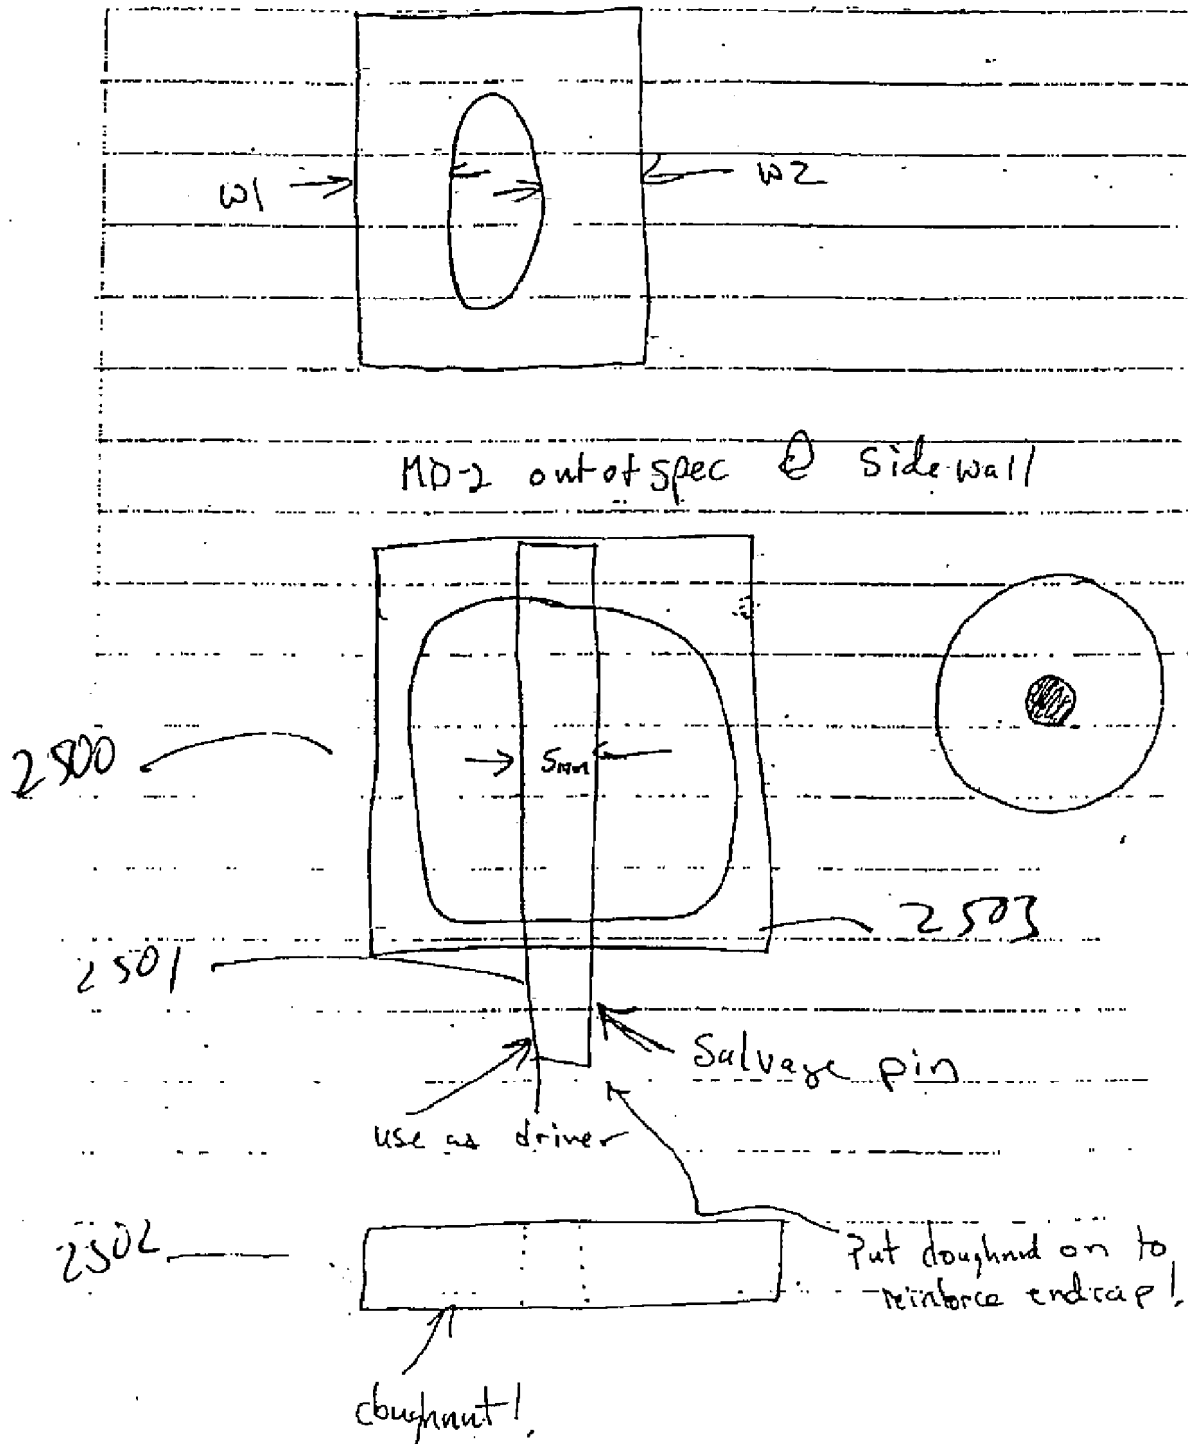 w1
w2
MD-2 out of spec @ Sidewall
2500
5mm
2503
2501
Salvage pin
use as driver
2502
Put doughnut on to
reinforce endcap!
doughnut!